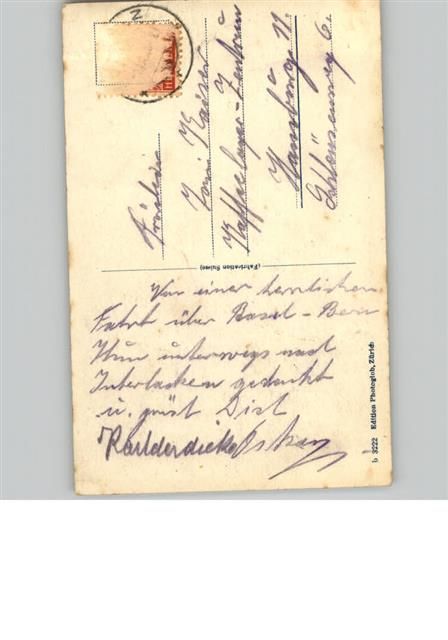 Fräulein
Kaiser
Kaffeelager-Zentrum
Hamburg 11.
6.
(Fabrication Suisse)
Von einer herrlichen
Fahrt über Basel - Bern
Nun unterwegs nach
Interlacken gedenkt
u. grüst Dich
Karlderdicke Oskar
b 3222 Edition Photoglob, Zürich